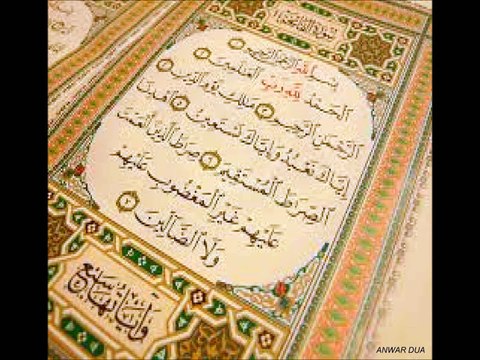 سورة الفاتحة
بِسْمِ اللَّهِ الرَّحْمَٰنِ الرَّحِيمِ ١
الْحَمْدُ لِلَّهِ رَبِّ الْعَالَمِينَ ٢
الرَّحْمَٰنِ الرَّحِيمِ ٣ مَالِكِ يَوْمِ الدِّينِ ٤
إِيَّاكَ نَعْبُدُ وَإِيَّاكَ نَسْتَعِينُ ٥ اهْدِنَا
الصِّرَاطَ الْمُسْتَقِيمَ ٦ صِرَاطَ الَّذِينَ أَنْعَمْتَ
عَلَيْهِمْ غَيْرِ الْمَغْضُوبِ عَلَيْهِمْ
وَلَا الضَّالِّينَ ٧
وآياتها سبع
ANWAR DUA